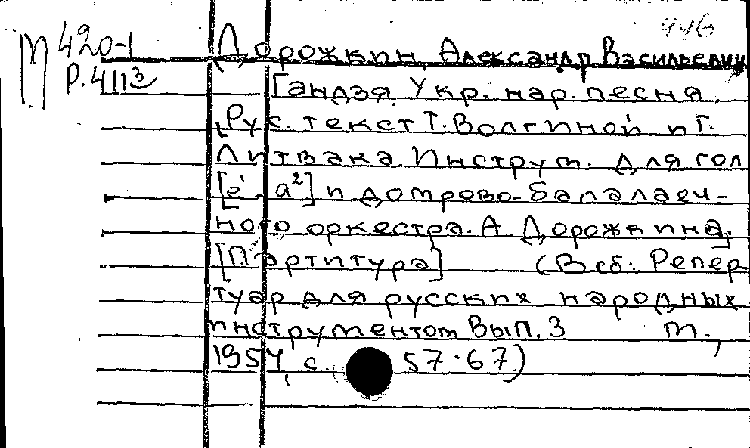 М 420-1
Р.4113
Дорожкин, Александр Васильевич
Гандзя. Укр. нар. песня.
Рус. текст Т. Волгиной и Г.
Литвака. Инструм. для гол
[е¹-а²] и домрово-балалаеч-
ного оркестра. А. Дорожкина.
[Партитура] (В сб: Репер
туар для русских народных
инструментом Вып. 3 М.,
1954, с. 57-67)